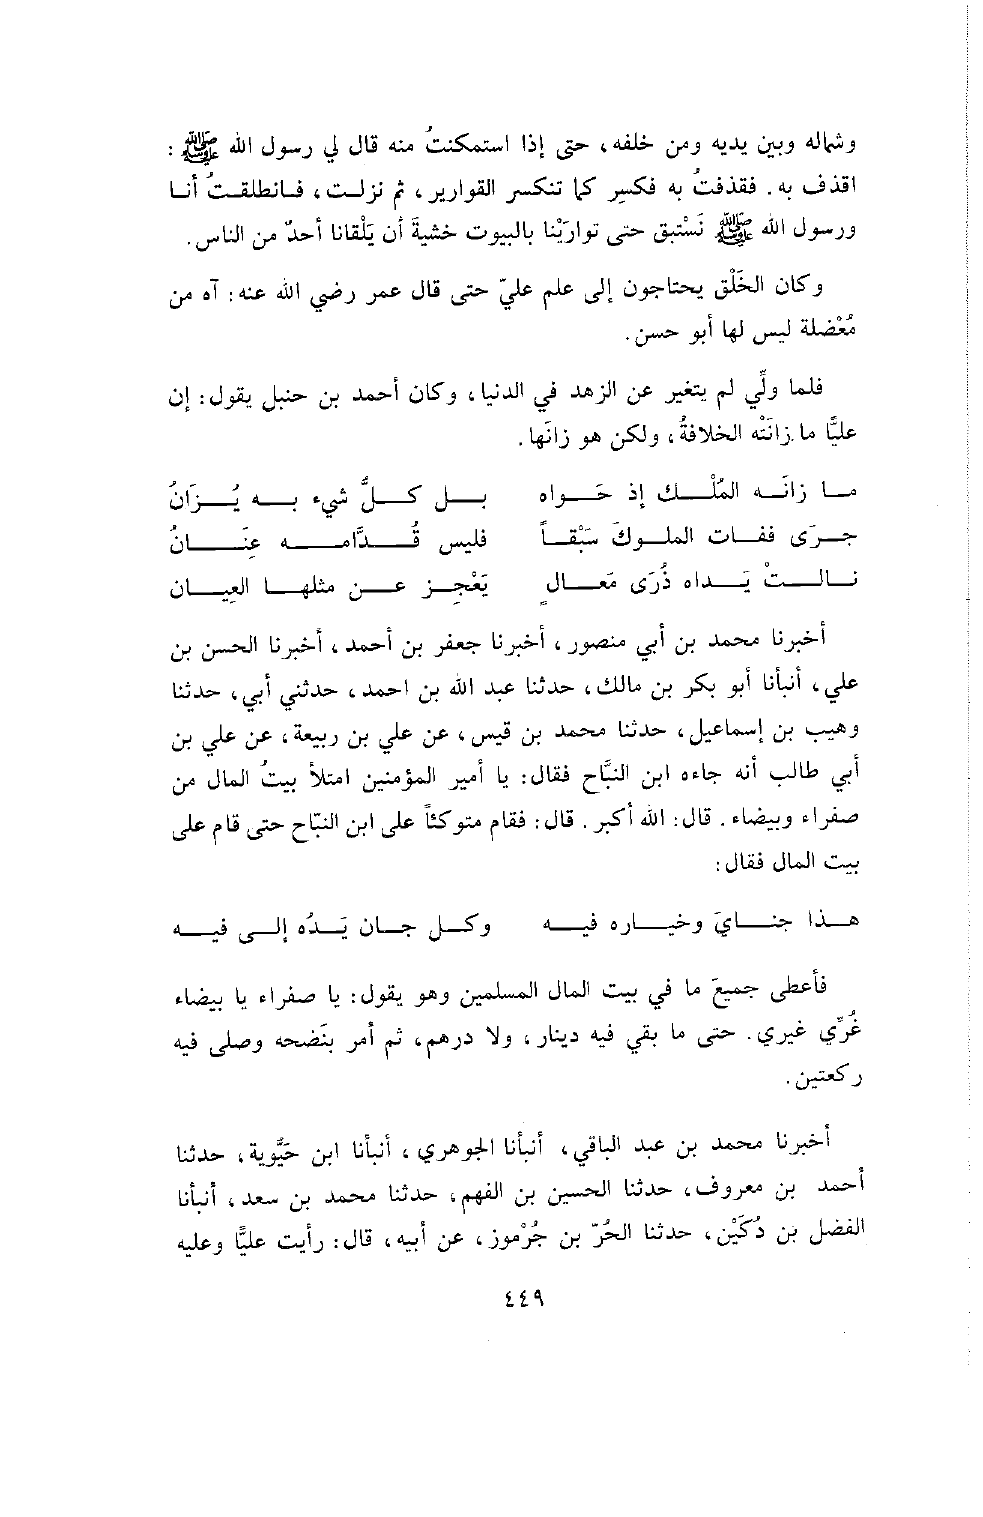 وشماله وبين يديه ومن خلفه، حتى إذا استمكنتُ منه قال لي رسول الله ﷺ :
اقذف به. فقذفتُ به فكسِر كما تنكسر القوارير، ثم نزلت، فانطلقتُ أنا
ورسول الله ﷺ نَسْتبق حتى توارَيْنا بالبيوت خشيةَ أن يَلْقانا أحدٌ من الناس.
وكان الخَلْق يحتاجون إلى علم عليّ حتى قال عمر رضي الله عنه: آه من
مُعْضلة ليس لها أبو حسن.
فلما ولِّي لم يتغير عن الزهد في الدنيا، وكان أحمد بن حنبل يقول: إن
عليًّا ما زانَتْه الخلافةُ، ولكن هو زانَها.
ما زانَه المُلْك إذ حَواه بل كلُّ شيء به يُزَانُ
جرَى ففات الملوكَ سَبْقاً فليس قُدَّامه عِنَانُ
نالتْ يَداه ذُرَى مَعَالٍ يَعْجِز عن مثلها العِيان
أخبرنا محمد بن أبي منصور، أخبرنا جعفر بن أحمد، أخبرنا الحسن بن
علي، أنبأنا أبو بكر بن مالك، حدثنا عبد الله بن احمد، حدثني أبي، حدثنا
وهيب بن إسماعيل، حدثنا محمد بن قيس، عن علي بن ربيعة، عن علي بن
أبي طالب أنه جاءه ابن النبَّاح فقال: يا أمير المؤمنين امتلأ بيتُ المال من
صفراء وبيضاء. قال: الله أكبر. قال: فقام متوكئاً على ابن النبّاح حتى قام على
بيت المال فقال:
هذا جنايَ وخياره فيه وكل جان يَدُه إلى فيه
فأعطى جميعَ ما في بيت المال المسلمين وهو يقول: يا صفراء يا بيضاء
غُرِّي غيري. حتى ما بقي فيه دينار، ولا درهم، ثم أمر بنَضحه وصلى فيه
ركعتين.
أخبرنا محمد بن عبد الباقي، أنبأنا الجوهري، أنبأنا ابن حيَّوية، حدثنا
أحمد بن معروف، حدثنا الحسين بن الفهم، حدثنا محمد بن سعد، أنبأنا
الفضل بن دُكَيْن، حدثنا الحُرّ بن جُرْموز، عن أبيه، قال: رأيت عليًّا وعليه
٤٤٩